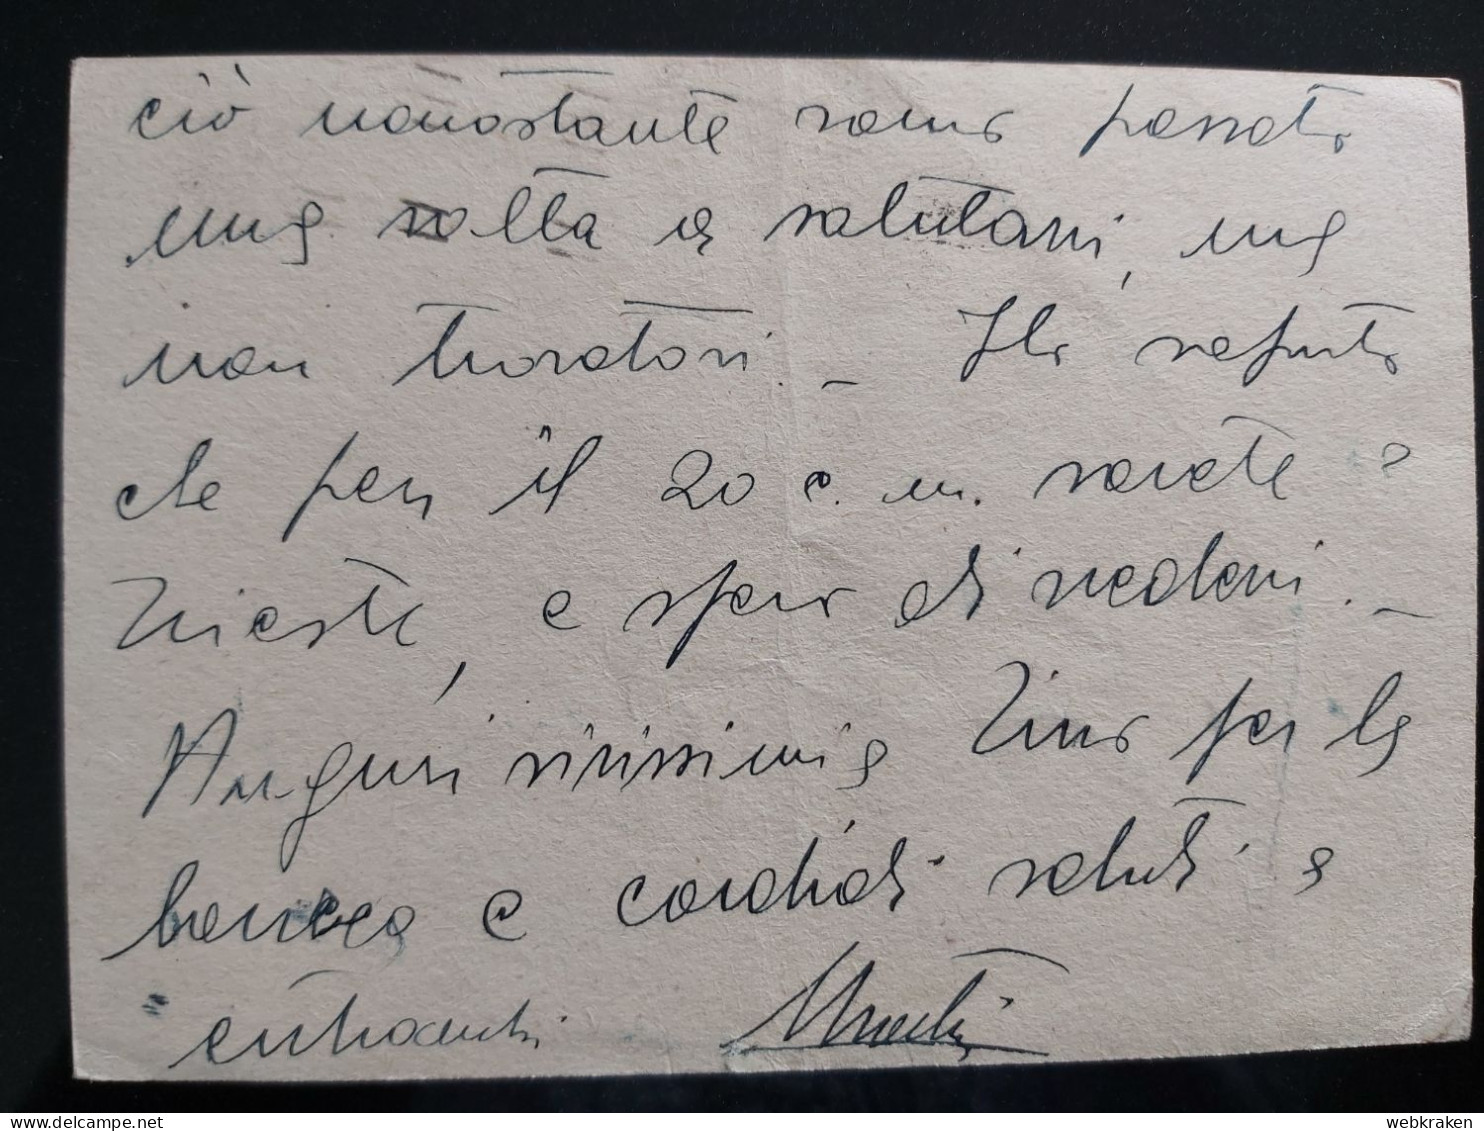 ciò nonostante sono passato
una volta a salutarvi, ma
non trovatovi. – Ho saputo
che per il 20 c. m. sarete a
Trieste, e spero di vedervi. –
Auguri vivissimi a Tino per la
e cordiali saluti a
entrambi
webkraken